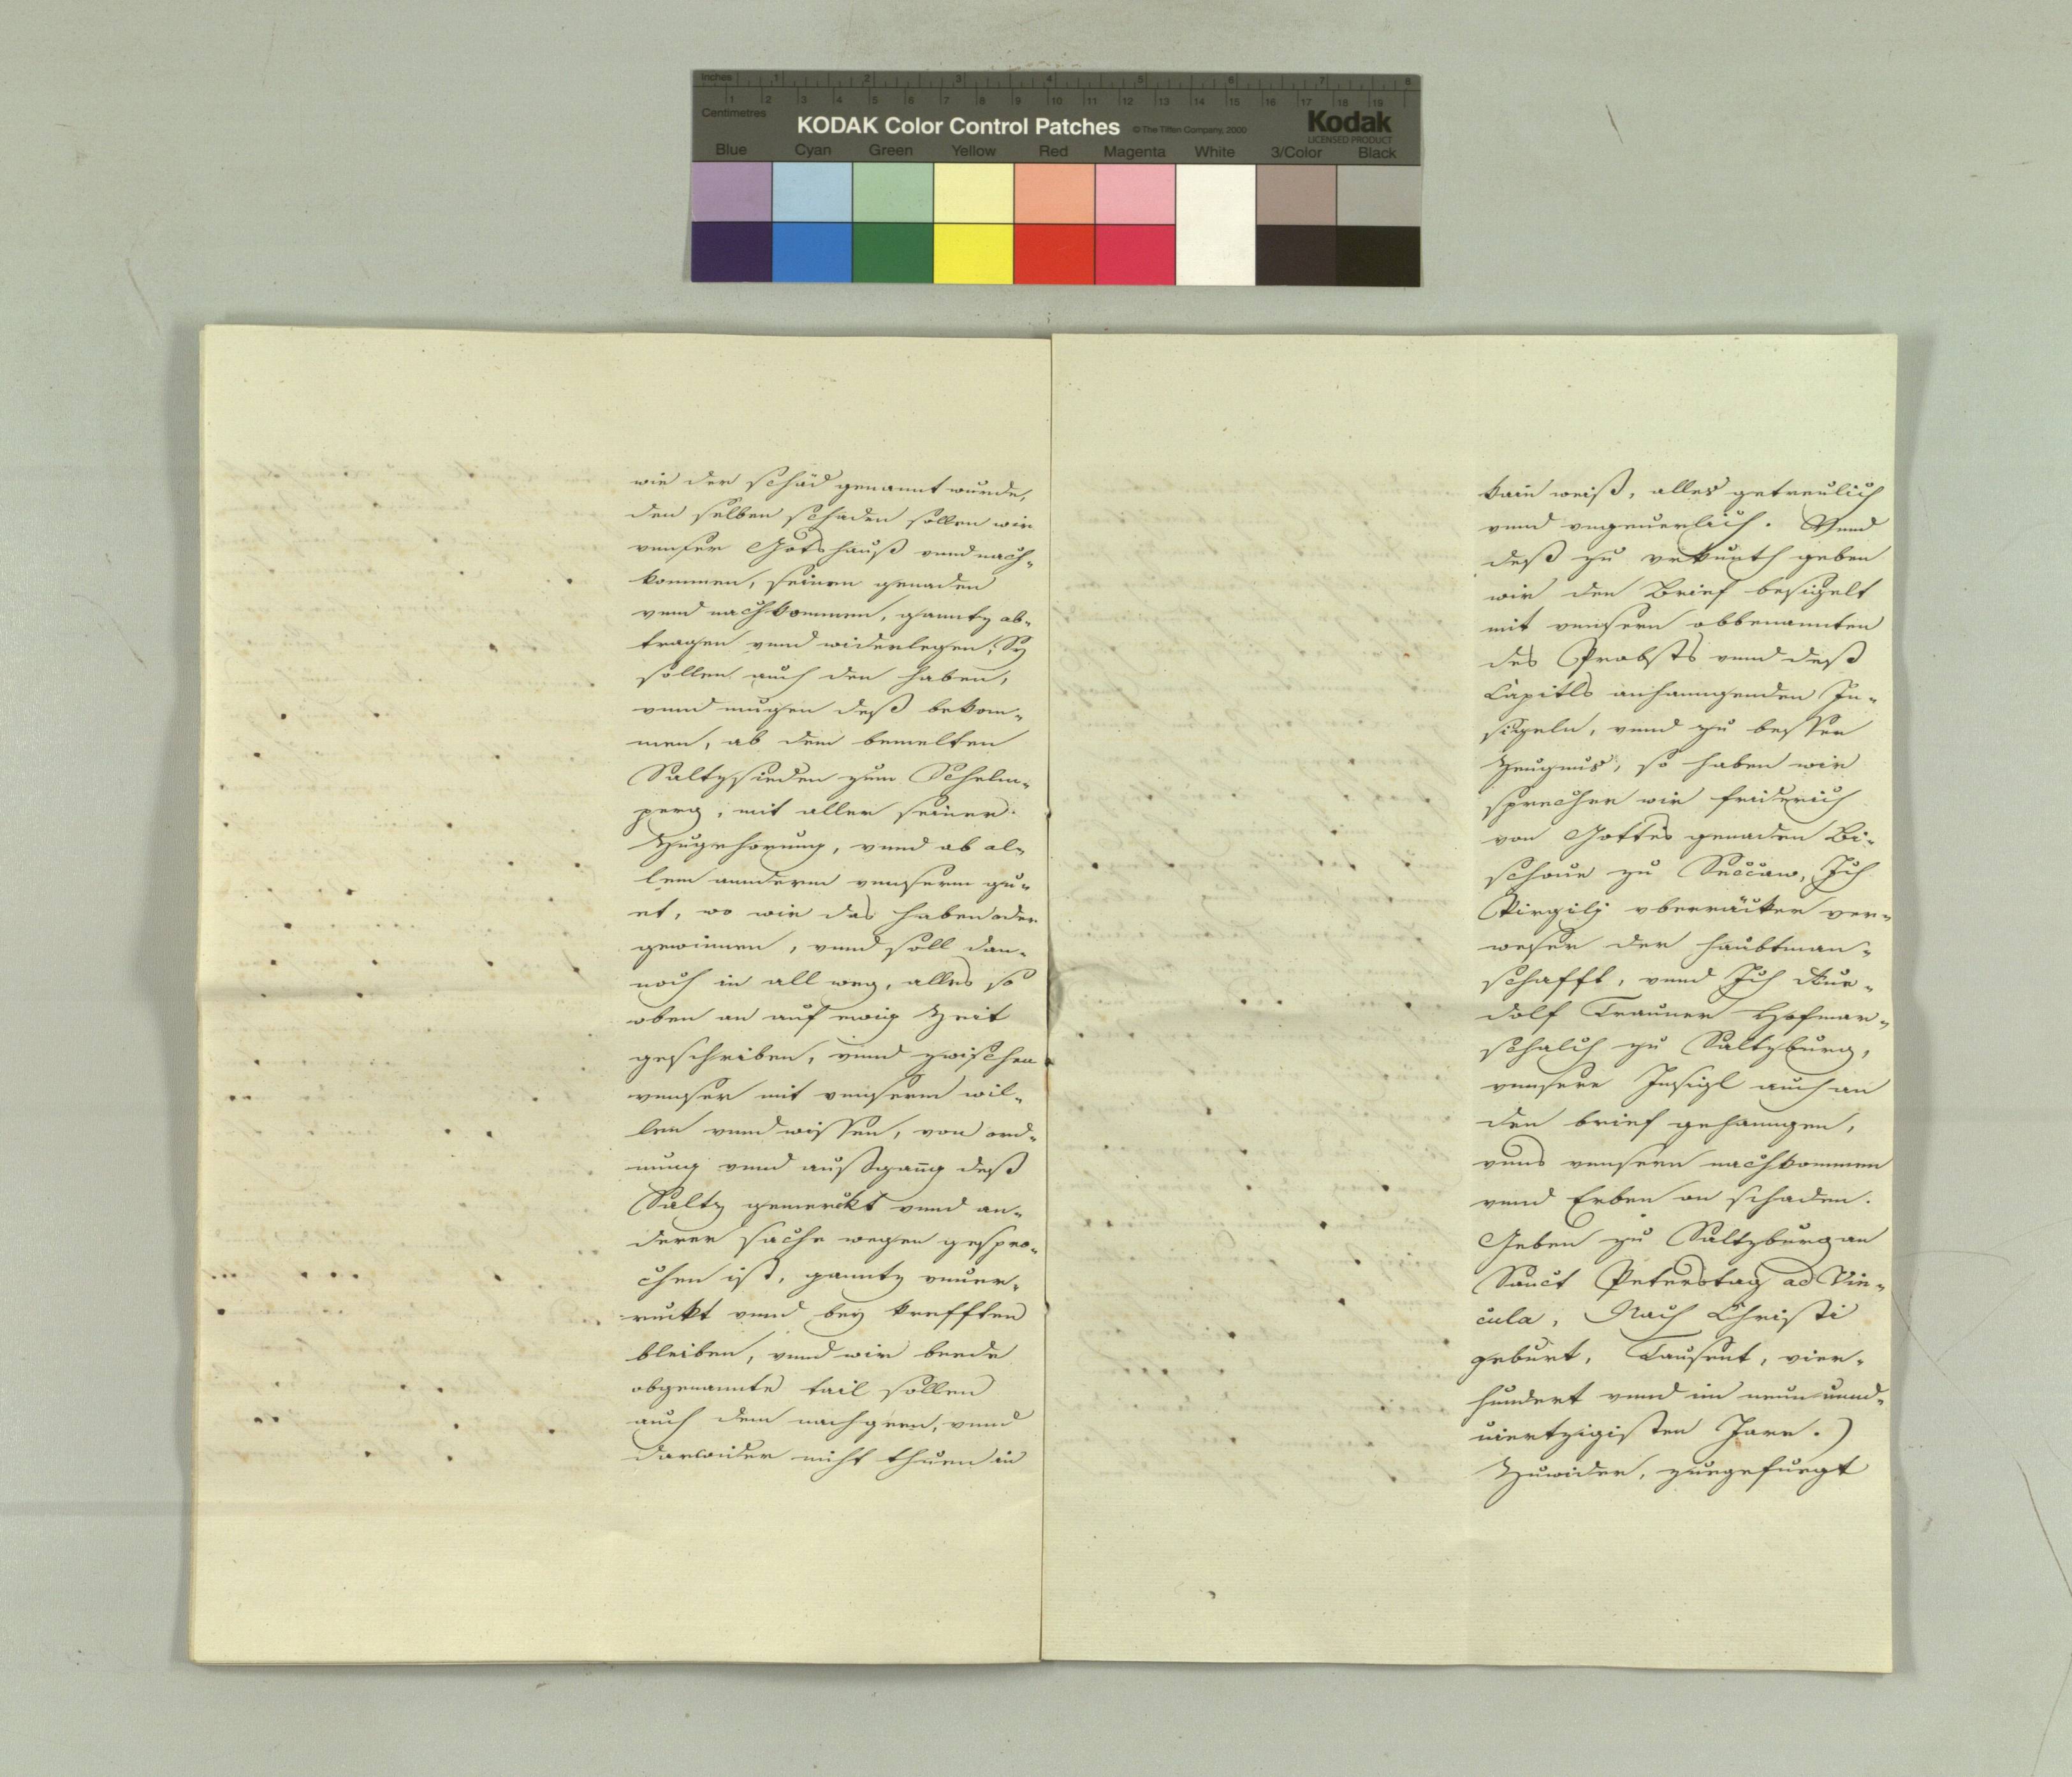 Inches 1 2 3 4 5 6 7 8
Centimetres 1 2 3 4 5 6 7 8 9 10 11 12 13 14 15 16 17 18 19
KODAK Color Control Patches © The Tiffen Company, 2000 Kodak
LICENSED PRODUCT
Blue Cyan Green Yellow Red Magenta White 3/Color Black
wie der schäd genannt wurde,
den selben schäden sollen wir
vnnser Gotshauß vnnd nach-
kommen, seinen genaden
vnnd nachkommen, ganntz ab-
tragen vnnd widerlegen, Sy
sollen auch den haben,
vnnd mugen deß bekom-
men, ab dem bemelten
Saltzsieden zum Schelm-
perg, mit aller seiner
Zugehörung, vnnd ab al-
lem annderm vnnserm gu-
et, wo wir das haben oder
gewinnen, vnnd soll dan-
noch in all weg, alles so
oben an auf ewig Zeit
geschriben, vnnd zwischen
vnnser mit vnnserm wil-
len vnnd wissen, von ord-
nung vnnd außgang deß
Saltz gemerckt vnnd an-
derer sache wegen gespro-
chen ist, ganntz vnuer-
ruckt vnnd bey krefften
bleiben, vnnd wir beede
obgenannte tail sollen
auch dem nachgeen, vnnd
darwider nicht thuen in
kain weiß, alles getreulich
vnnd vngeuerlich. Vnnd
deß zu vrkunth geben
wir den Brief besigelt
mit vnnsern obbenannten
des Probsts vnnd deß
Capitls anhanngenden In-
sigeln, vnnd zu besser
Zeugnus, so haben wir
sprecher wir friderich
von Gottes genaden Bi-
schoue zu Seccaw, Ich
Virgilj vberräcker ver-
weser der haubtman-
schafft, vnnd Ich Rue-
dolf Trauner Hofmar-
schalch zu Saltzburg,
vnnsere Insigl auch an
den brief gehanngen,
vnns vnnsern nachkommen
vnnd Erben on schaden.
Geben zu Saltzburg an
Sanct Peterstag ad Vin-
cula, Nach Christi
geburt, Tausent, vier-
hundert vnnd im neun vnnd-
uiertzigisten Jare.)
Zuwider, zuegefuegt